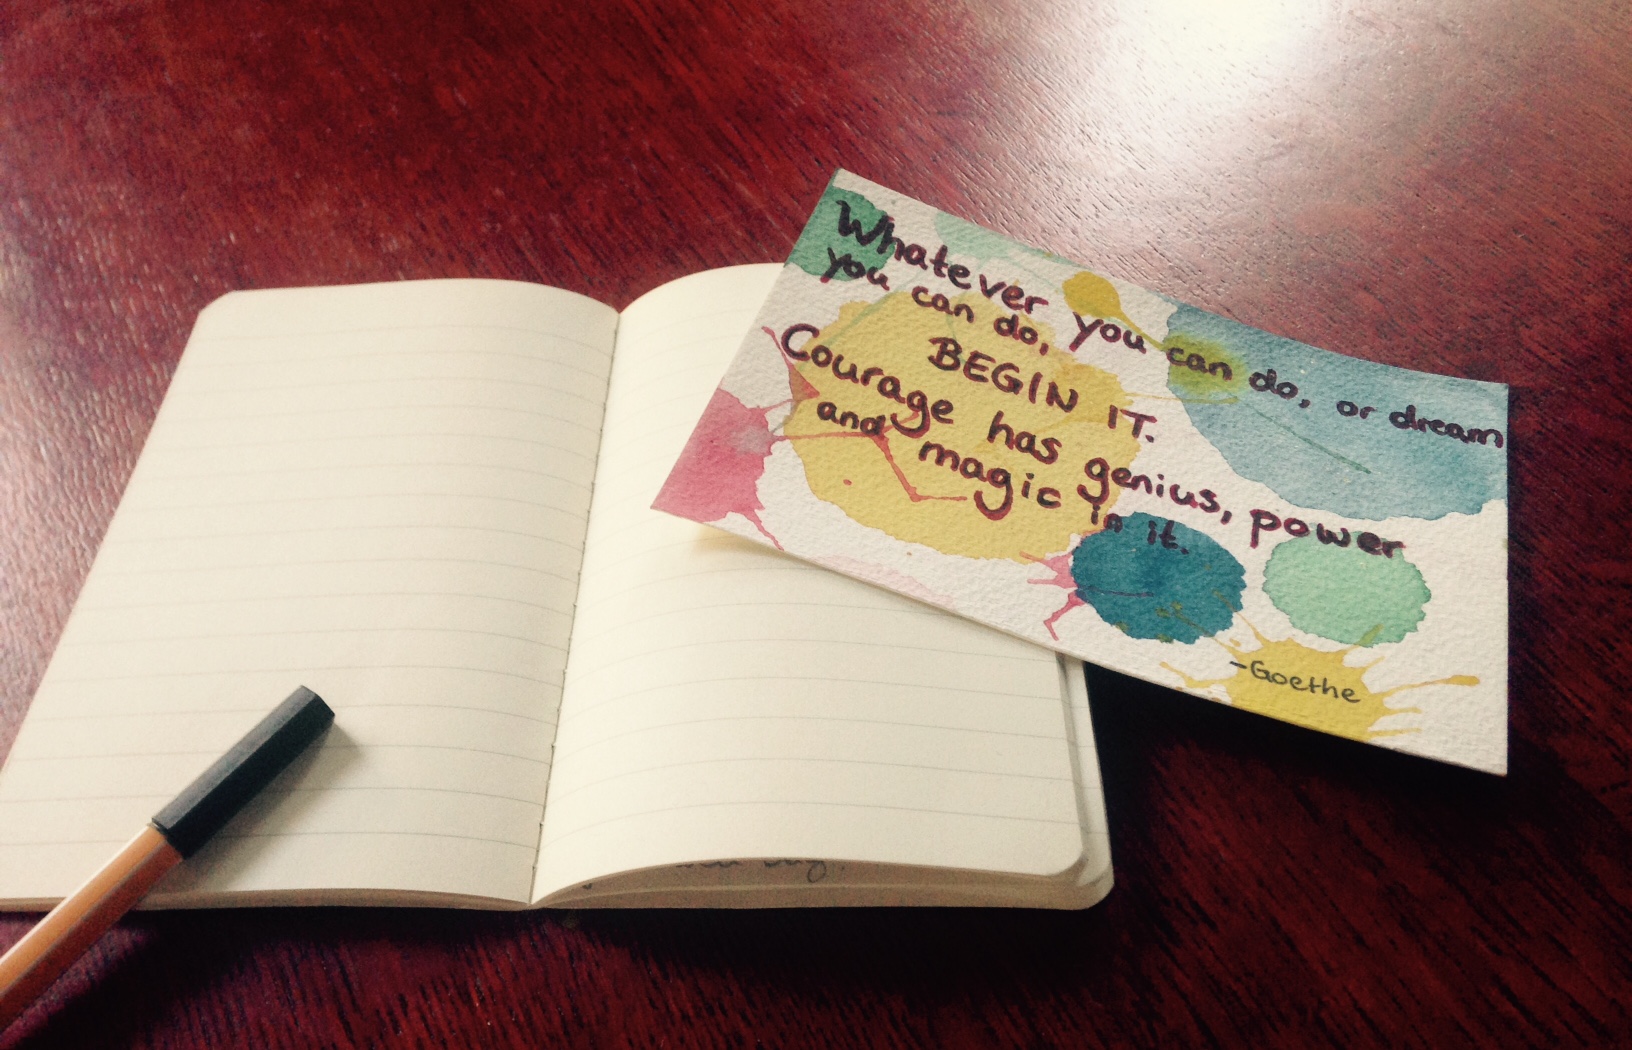 Whatever you can do, or dream
you can do,
BEGIN IT.
Courage has genius, power
and magic in it.
-Goethe